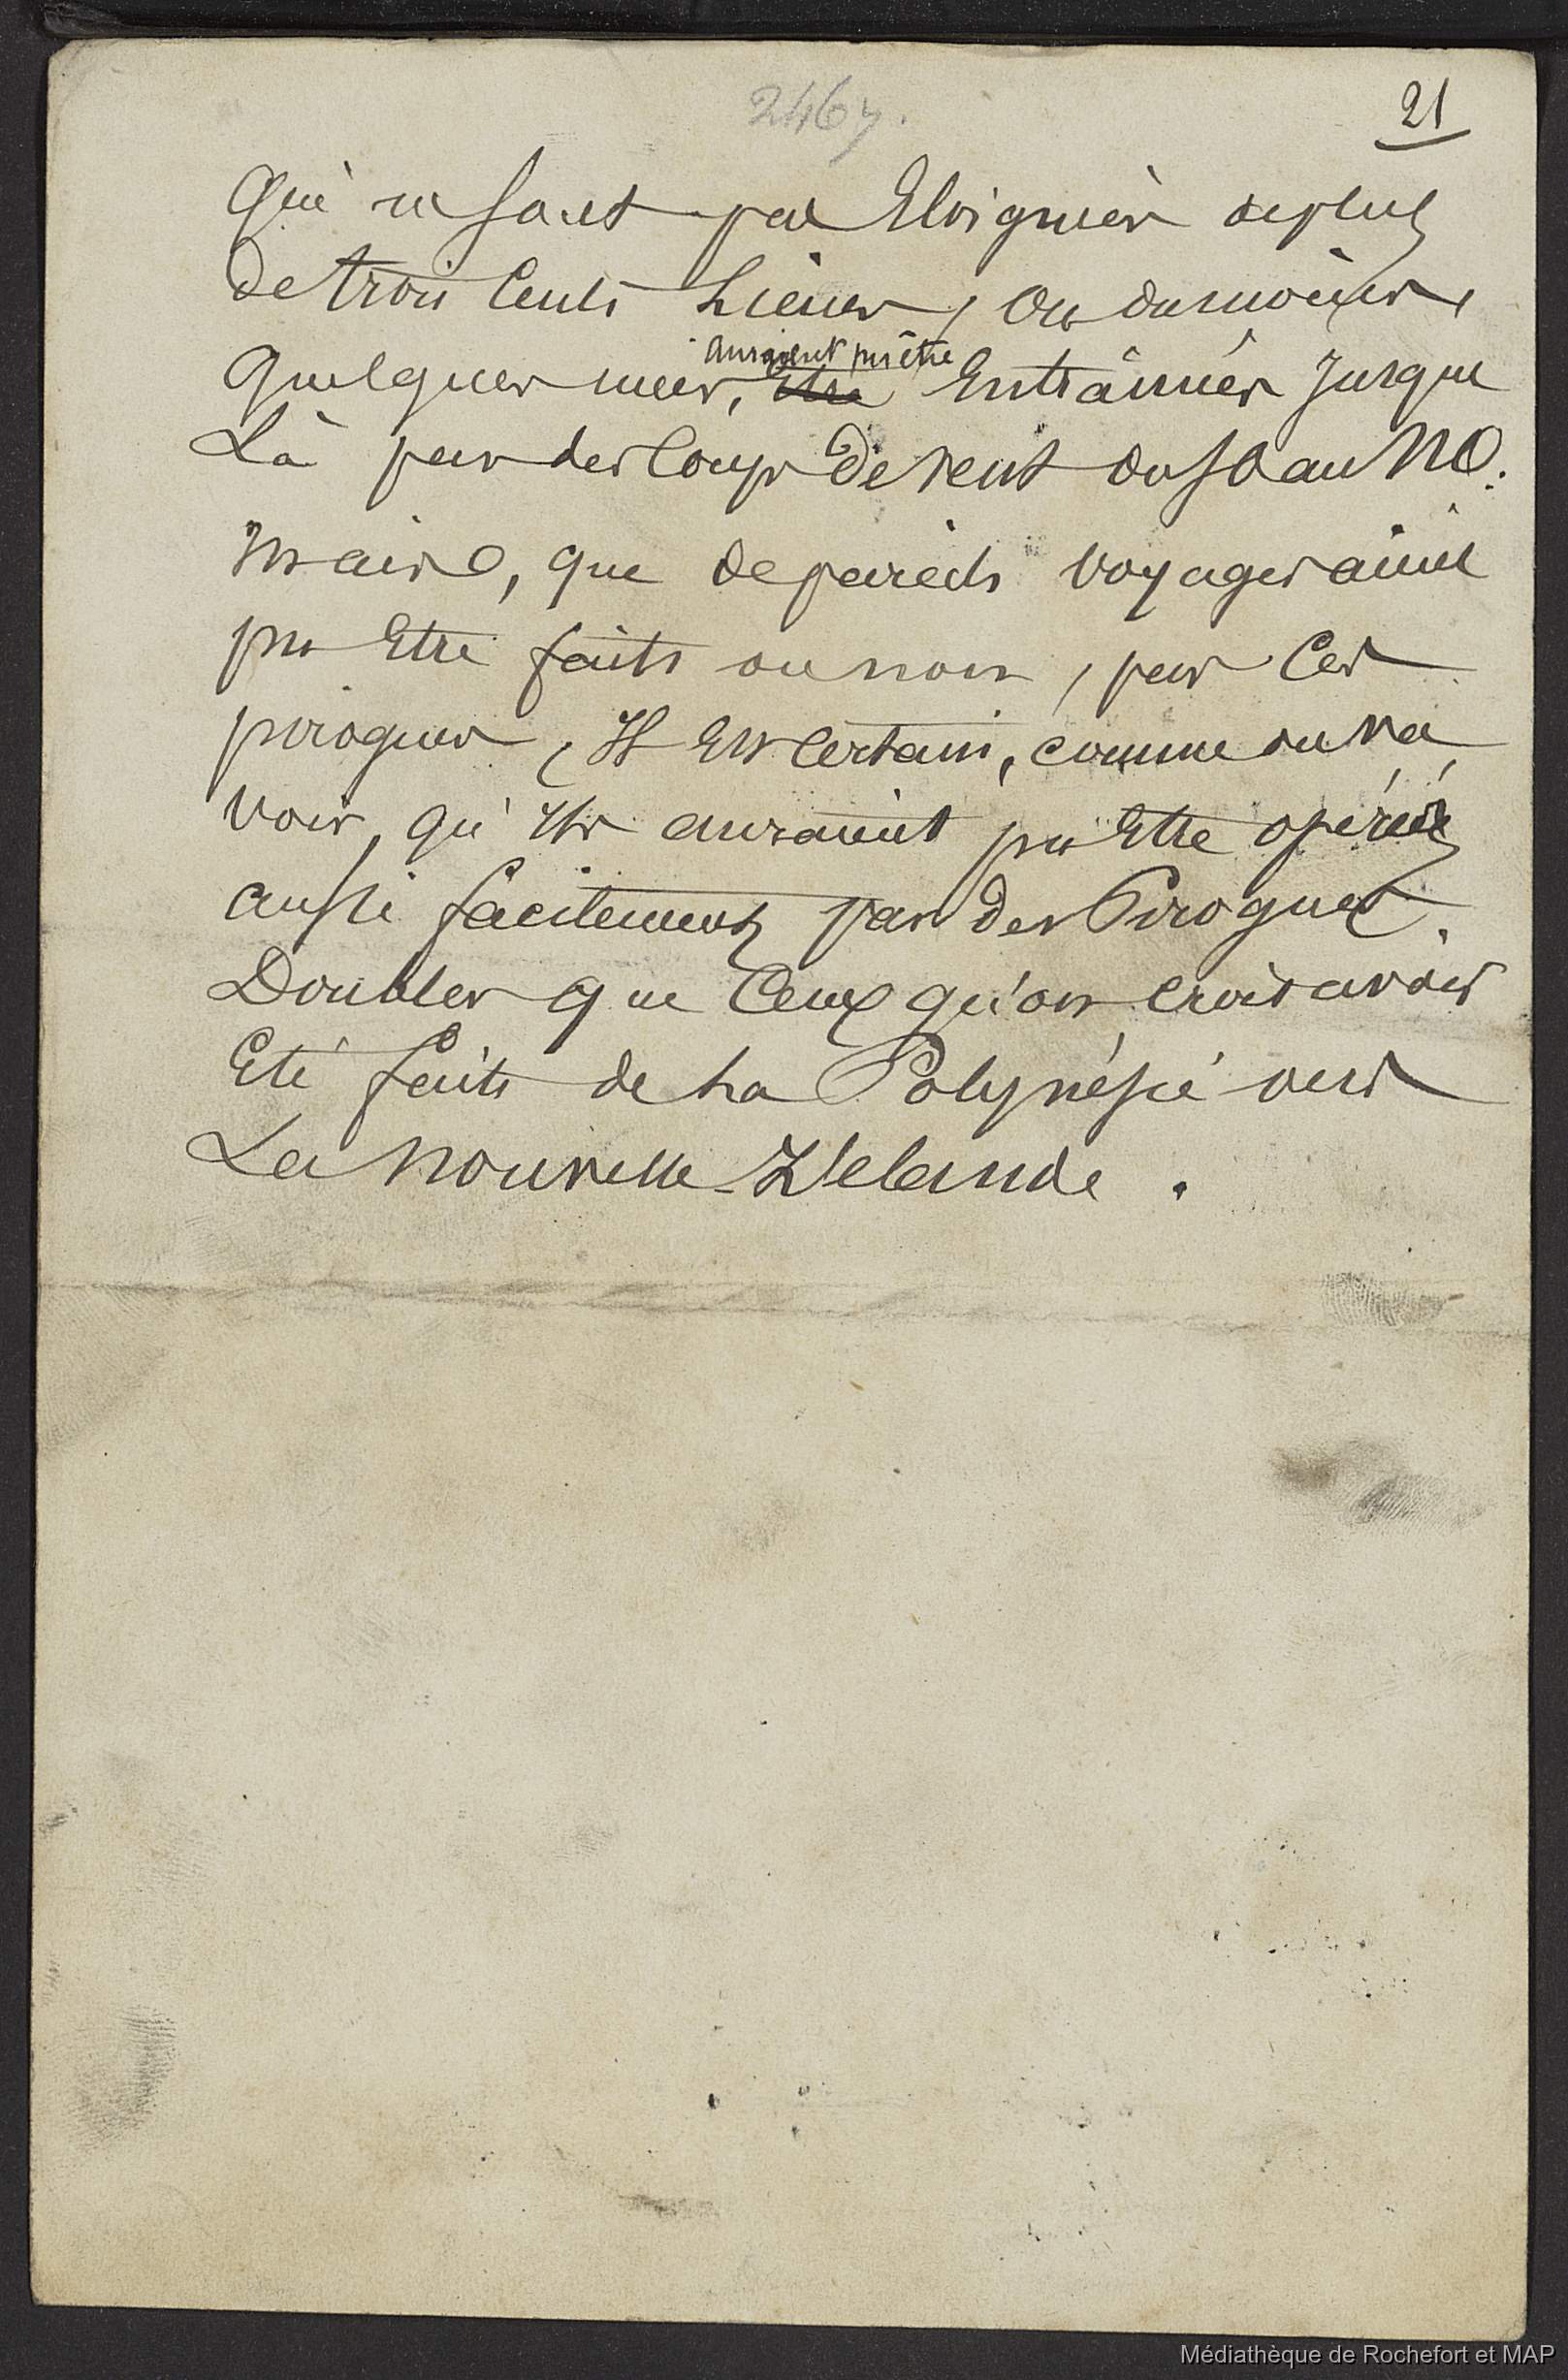 2467.
21
qui ne sont pas Eloignées de plus
de trois Cents Lieues, ou du moins,
auraient pu être
quelques unes, Etre Entrâinnées Jusque
Là par des Coups de vent du SO au NO.
mais, que de pareils voyages aient
pu Etre faits ou non, par Ces
pirogues, Il Est Certain, comme on va
voir, qu'ils auraient pu Etre opérés
aussi facilement par des Pirogues
Doubles que Ceux qu'on croit avoir
Eté faits de La Polynésie vers
La nouvelle-Zélande.
Médiathèque de Rochefort et MAP